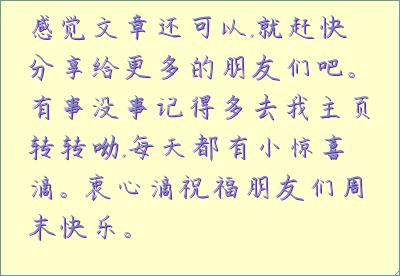 感觉文章还可以,就赶快
分享给更多的朋友们吧。
有事没事记得多去我主页
转转呦,每天都有小惊喜
滴。衷心滴祝福朋友们周
末快乐。